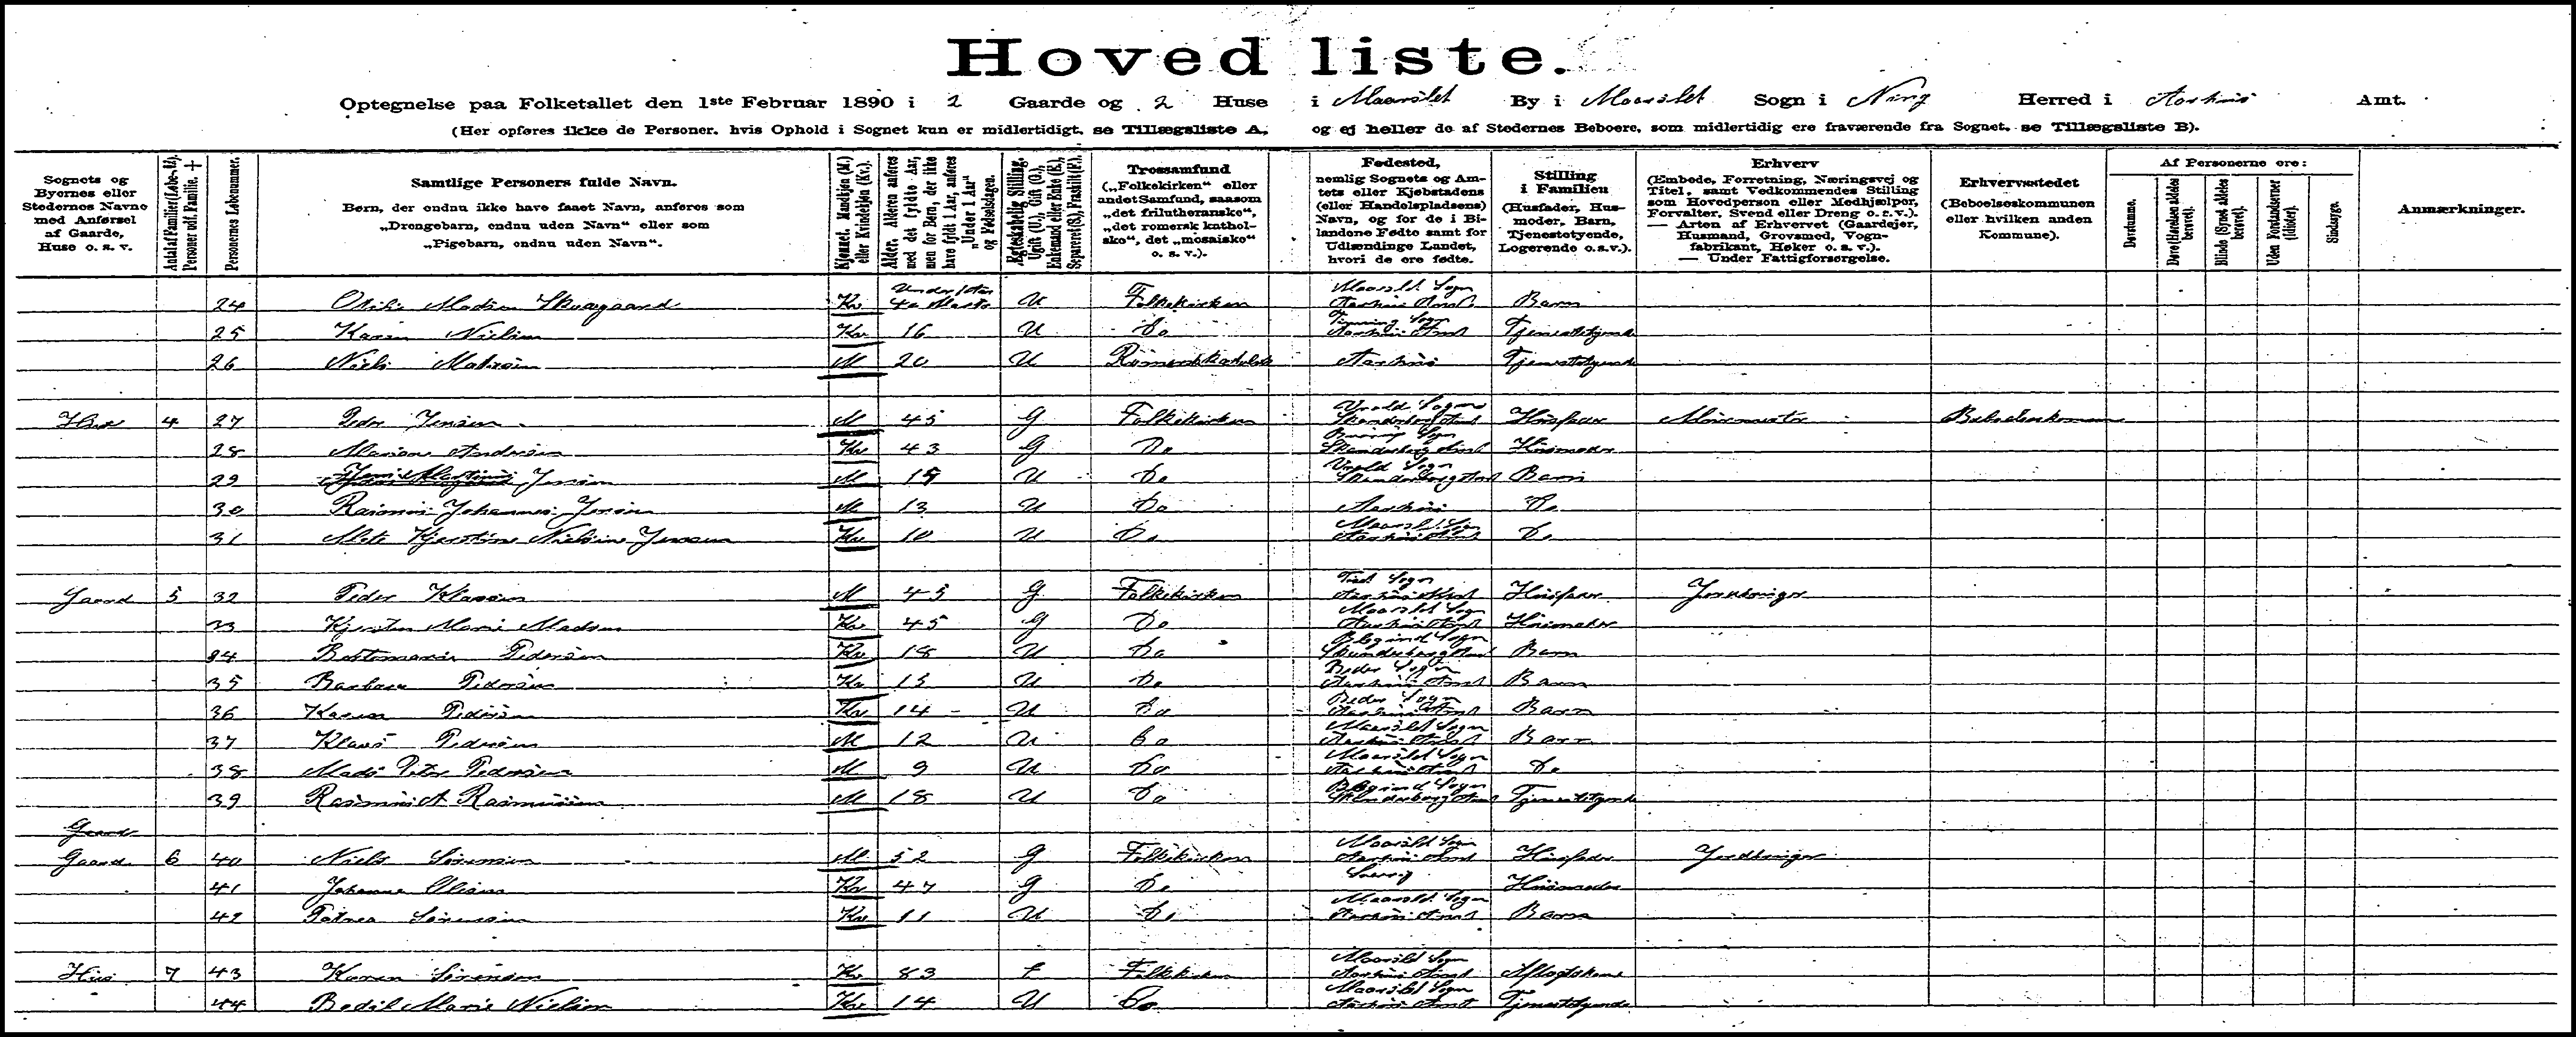 Hovedliste.
Optegnelse paa Folketallet den 1ste Februar 1890 i 2 Gaarde og 2 Huse i Maarslet By i Maarslet Sogn i Ning Herred i Aarhus Amt.
(Her opføres ikke de Personer, hvis Ophold i Sognet kun er midlertidigt, se Tillægsliste A, og ej heller de af Stedernes Beboere, som midlertidig ere fraværende fra Sognet, se Tillægsliste B).
Sognets og Byernes eller Stedernes Navne med Anførsel af Gaarde, Huse o. s. v.
Antal af Familier (Løbe-Nr.). Personer udf. Familie. +
Personernes Løbenummer.
Samtlige Personers fulde Navn.
Børn, der endnu ikke have faaet Navn, anføres som „Drengebarn, endnu uden Navn“ eller som „Pigebarn, endnu uden Navn“.
Kjønnet. Mandkjøn (M.) eller Kvindekjøn (Kv.).
Alder. Alderen anføres med det fyldte Aar, men for Børn, der ikke have fyldt 1 Aar, anføres „Under 1 Aar“ og Fødselsdagen.
Ægteskabelig Stilling. Ugift (U.), Gift (G.), Enkemand eller Enke (E.), Separeret (S.), Fraskilt (F.).
Trossamfund („Folkekirken“ eller andet Samfund, saasom „det frilutheranske“, „det romersk katholske“, det „mosaiske“ o. s. v.).
Fødested, nemlig Sognets og Amtets eller Kjøbstadens (eller Handelspladsens) Navn, og for de i Bilandene Fødte samt for Udlændinge Landet, hvori de ere fødte.
Stilling i Familien (Husfader, Husmoder, Barn, Tjenestetyende, Logerende o.s.v.).
Erhverv (Embede, Forretning, Næringsvej og Titel, samt Vedkommendes Stilling som Hovedperson eller Medhjælper, Forvalter, Svend eller Dreng o. s. v.). — Arten af Erhvervet (Gaardejer, Husmand, Grovsmed, Vognfabrikant, Høker o. s. v.). — Under Fattigforsørgelse.
Erhvervsstedet (Beboelseskommunen eller hvilken anden Kommune).
Af Personerne ere:
Døvstumme.
Døve (Hørelsen aldeles berøvet).
Blinde (Synet aldeles berøvet).
Uden Forstandsevner (Idioter).
Sindssyge.
Anmærkninger.
24 Madsen Skovgaard Kv Under 1 Aar U Folkekirken Maarslet Sogn Aarhus Amt Barn
25 Karen Nielsen Kv 16 U Do Sogn Aarhus Amt Tjenestetyende
26 Niels M 20 U Romerskkatholsk Aarhus Tjenestetyende
Hus 4 27 Peder Jensen M 45 G Folkekirken Vrold Sogn Skanderborg Amt Husfader Beboelseskommunen
28 Mariane Andersen Kv 43 G Do Sogn Skanderborg Amt Husmoder
29 Jensen M 15 U Do Vrold Sogn Skanderborg Amt Barn
30 Rasmus Johannes Jensen M 13 U Do Aarhus Do
31 Mete Kjerstine Nielsine Jensen Kv 10 U Do Maarslet Sogn Aarhus Amt Do
Gaard 5 32 Peder Klausen M 45 G Folkekirken Sogn Aarhus Amt Husfader Jordbruger
33 Kjersten Marie Madsen Kv 45 G Do Maarslet Sogn Aarhus Amt Husmoder
34 Pedersen Kv 18 U Do Blegind Sogn Skanderborg Amt Barn
35 Barbara Pedersen Kv 15 U Do Beder Sogn Aarhus Amt Barn
36 Karen Pedersen Kv 14 U Do Beder Sogn Aarhus Amt Barn
37 Klaus Pedersen M 12 U Do Maarslet Sogn Aarhus Amt Barn
38 Mads Peter Pedersen M 9 U Do Maarslet Sogn Aarhus Amt Do
39 Rasmus A Rasmussen M 18 U Do Blegind Sogn Skanderborg Amt Tjenestetyende
Gaard
Gaard 6 40 Niels Sørensen M 52 G Folkekirken Maarslet Sogn Aarhus Amt Husfader Jordbruger
41 Johanne Kv 47 G Do Husmoder
42 Petrea Sørensen Kv 11 U Do Maarslet Sogn Aarhus Amt Barn
Hus 7 43 Karen Sørensen Kv 83 E Folkekirken Maarslet Sogn Aarhus Amt Aftægtskone
44 Bodil Marie Nielsen Kv 14 U Do Maarslet Sogn Aarhus Amt Tjenestetyende